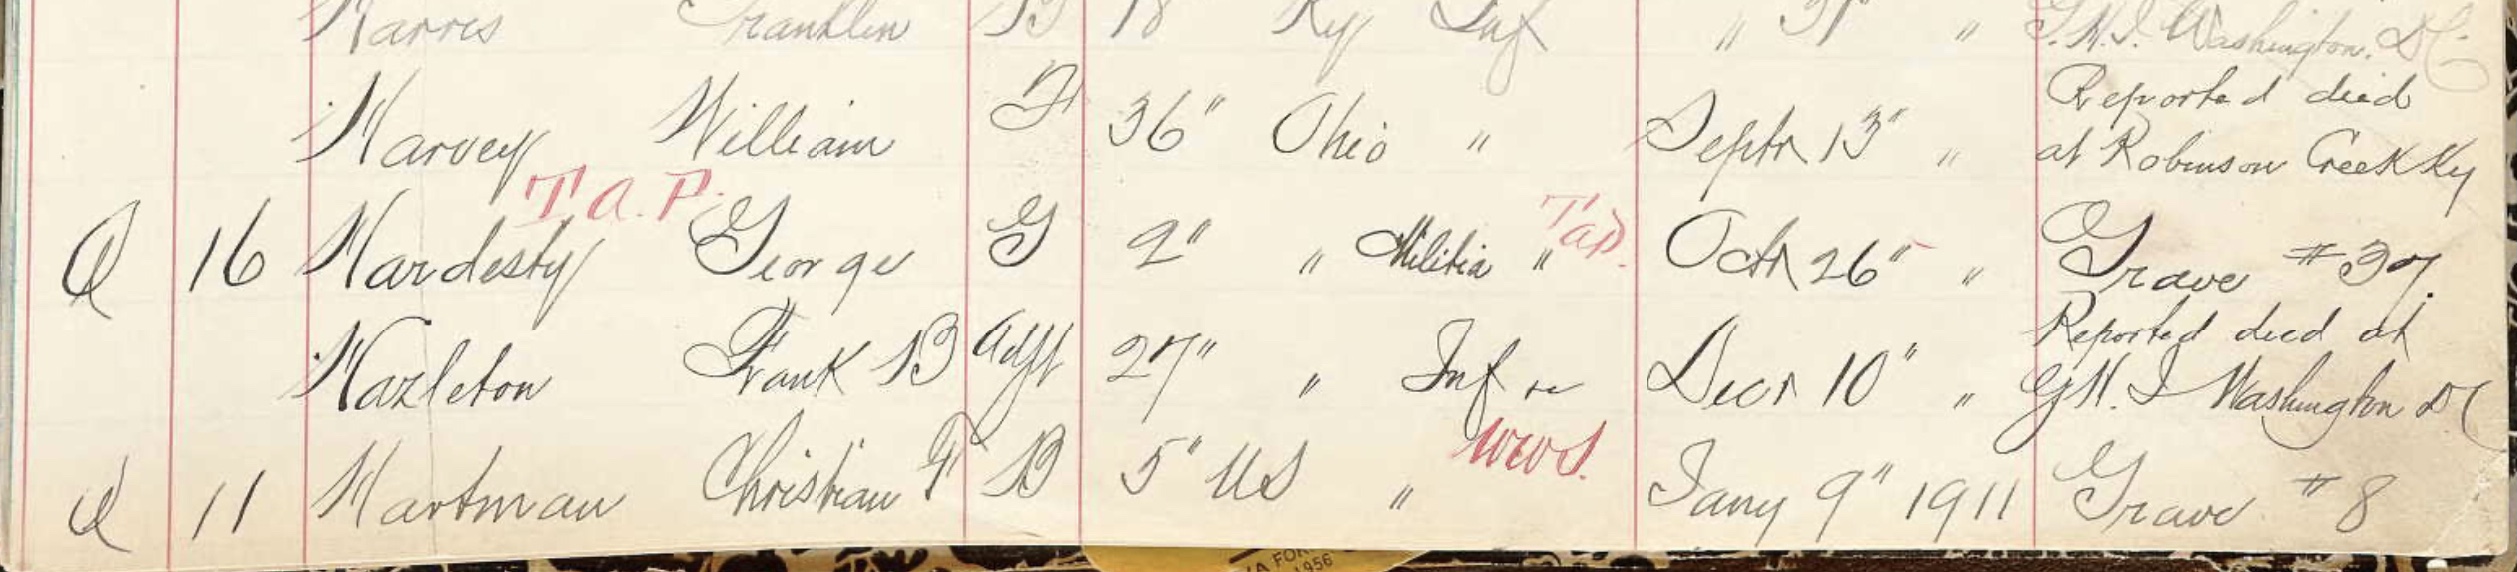 Harris Franklin B 18 Ky Inf " 31" " G.H.I. Washington. DC.
Harvey William F 36" Ohio " Septr 13" " Reported died
at Robinson Creek Ky
T.A.P.
Q 16 Hardesty George G 2" " Militia " Tap. Octr 26" " Grave #37.
Hazleton Frank B Adjt 27" " Inf Decr 10" " Reported died at
G.H.I Washington DC
W.W.S.
Q 11 Hartman Christian F B 5" US " Jany 9" 1911 Grave #8
1956